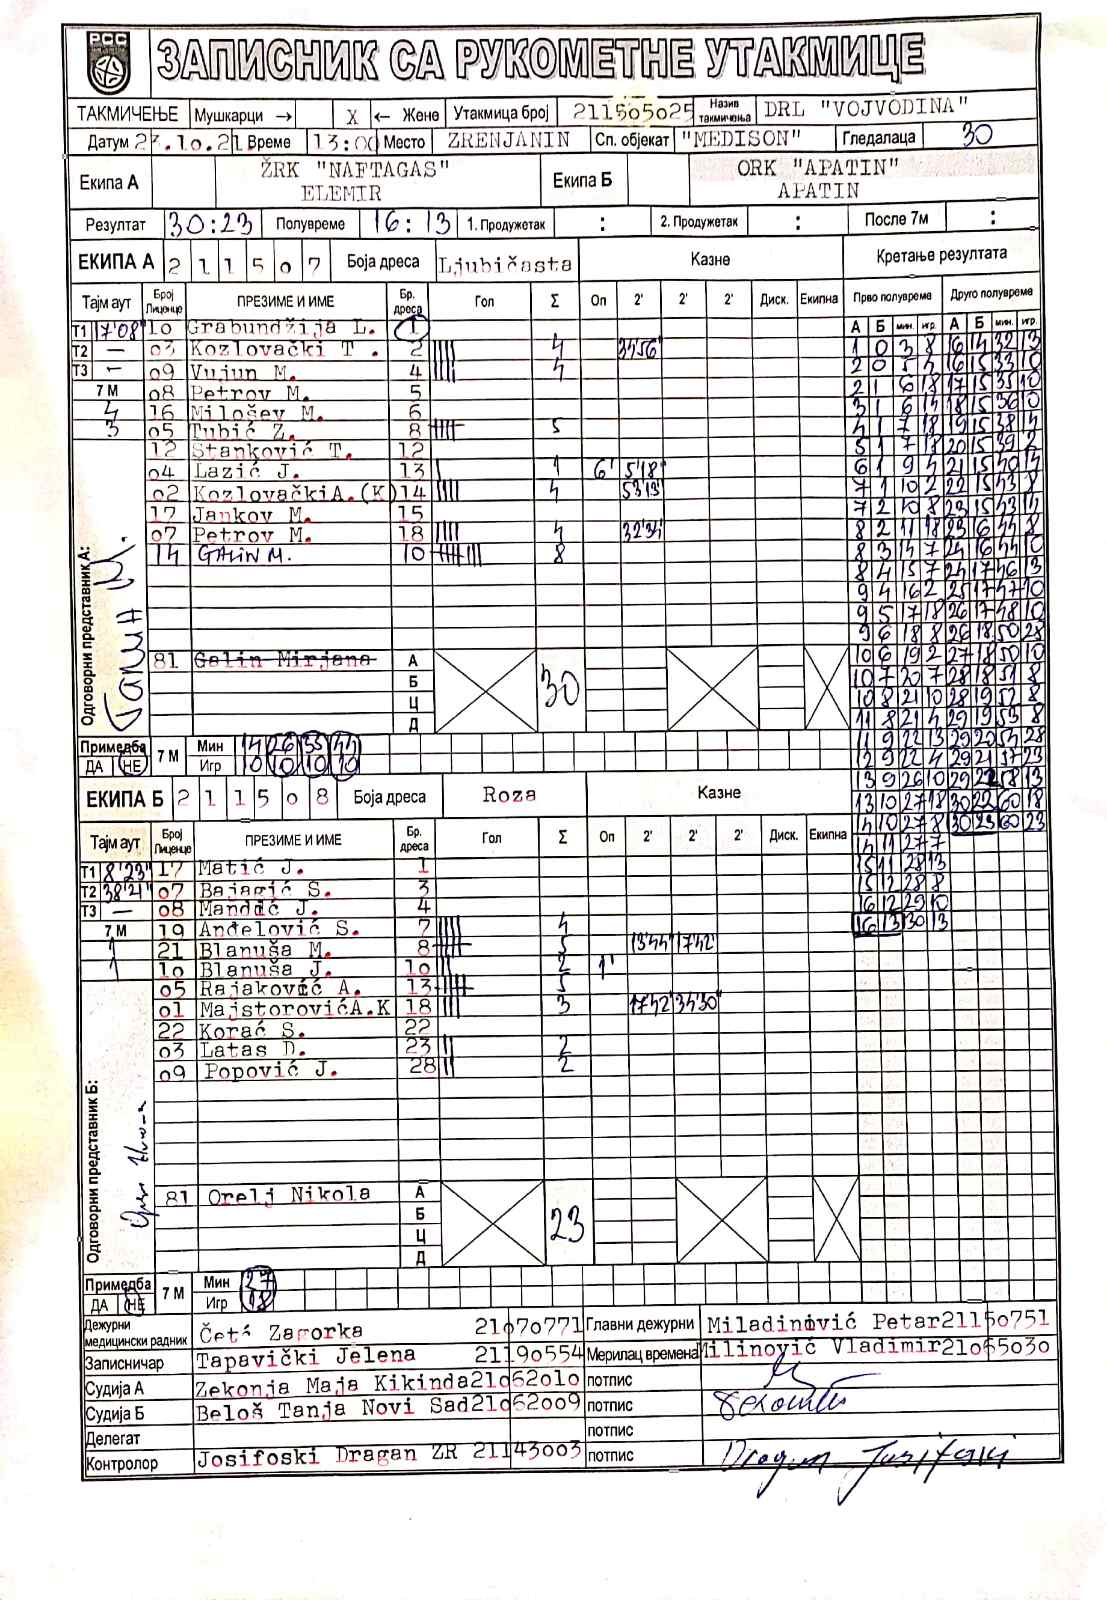 РСС
ЗАПИСНИК СА РУКОМЕТНЕ УТАКМИЦЕ
ТАКМИЧЕЊЕ Мушкарци → X ← Жене Утакмица број 211505025 Назив такмичења DRL "VOJVODINA"
Датум 23.10.21 Време 13:00 Место ZRENJANIN Сп. објекат "MEDISON" Гледалаца 30
Екипа А ŽRK "NAFTAGAS" ELEMIR Екипа Б ORK "APATIN" APATIN
Резултат 30:23 Полувреме 16:13 1. Продужетак : 2. Продужетак : После 7м :
ЕКИПА А 2 1 1 5 0 7 Боја дреса Ljubičasta Казне Кретање резултата
Тајм аут Број Лиценце ПРЕЗИМЕ И ИМЕ Бр. дреса Гол Σ Оп 2' 2' 2' Диск. Екипна Прво полувреме Друго полувреме
А Б мин. игр. А Б мин. игр.
Т1 17'08" 10 Grabundžija L. 1
Т2 — 03 Kozlovački T. 2 |||| 4 34'56"
Т3 — 09 Vujun M. 4 |||| 4
7 М 08 Petrov M. 5
4 16 Milošev M. 6
3 05 Tubić Z. 8 5
12 Stanković T. 12
04 Lazić J. 13 | 1 6' 5'18"
02 Kozlovački A.(K) 14 |||| 4 53'13"
17 Jankov M. 15
07 Petrov M. 18 |||| 4 32'34"
14 GALIN M. 10 8
Одговорни представник А:
81 Galin Mirjana А
Б
Ц
Д
30
Примедба ДА НЕ 7 М Мин 14 26 35 44
Игр 10 10 10 10
1 0 3 8 16 14 32 13
2 0 5 4 16 15 33 10
2 1 6 18 17 15 35 10
3 1 6 14 18 15 36 10
4 1 7 18 19 15 38 14
5 1 7 18 20 15 39 2
6 1 9 4 21 15 40 14
7 1 10 2 22 15 43 8
7 2 10 8 23 15 43 14
8 2 11 18 23 16 44 8
8 3 14 7 24 16 44 10
8 4 15 7 24 17 46 13
9 4 16 2 25 17 47 10
9 5 17 18 26 17 48 10
9 6 18 8 26 18 50 28
10 6 19 2 27 18 50 10
10 7 20 7 28 18 51 8
10 8 21 10 28 19 52 8
11 8 21 4 29 19 53 8
11 9 22 13 29 20 54 28
12 9 22 4 29 21 57 23
13 9 26 10 29 22 58 13
13 10 27 18 30 22 60 18
14 10 27 8 30 23 60 23
14 11 27 7
15 11 28 13
15 12 28 8
16 12 29 10
16 13 30 13
ЕКИПА Б 2 1 1 5 0 8 Боја дреса Roza Казне
Тајм аут Број Лиценце ПРЕЗИМЕ И ИМЕ Бр. дреса Гол Σ Оп 2' 2' 2' Диск. Екипна
Т1 8'23" 17 Matić J. 1
Т2 38'21" 07 Bajagić S. 3
Т3 — 08 Mandić J. 4
7 М 19 Anđelović S. 7 |||| 4
1 21 Blanuša M. 8 5 13'44" 17'42"
1 10 Blanuša J. 10 || 2 1'
05 Rajaković A. 13 5
01 Majstorović A.K 18 ||| 3 17'42" 34'30"
22 Korać S. 22
03 Latas D. 23 || 2
09 Popović J. 28 || 2
Одговорни представник Б:
81 Orelj Nikola А
Б
Ц
Д
23
Примедба ДА НЕ 7 М Мин 27
Игр 18
Дежурни медицински радник Četi Zagorka 21070771 Главни дежурни Miladinović Petar 21150751
Записничар Tapavički Jelena 21190554 Мерилац времена Milinović Vladimir 21065030
Судија А Zekonja Maja Kikinda 21062010 потпис
Судија Б Beloš Tanja Novi Sad 21062009 потпис
Делегат потпис
Контролор Josifoski Dragan ZR 21143003 потпис Dragan Josifoski